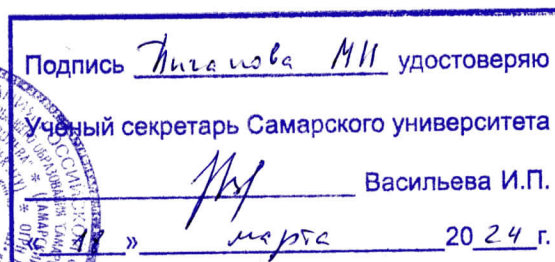 Подпись Пиганова МН удостоверяю
Учёный секретарь Самарского университета
Васильева И.П.
« 18 » марта 20 24 г.